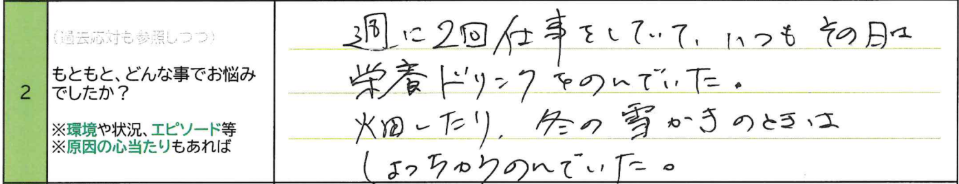 2
(過去応対も参照しつつ)
もともと、どんな事でお悩み
でしたか?
※環境や状況、エピソード等
※原因の心当たりもあれば
週に2回仕事をしていて、いつもその日は
栄養ドリンクをのんでいた。
畑したり、冬の雪かきのときは
しょっちゅうのんでいた。